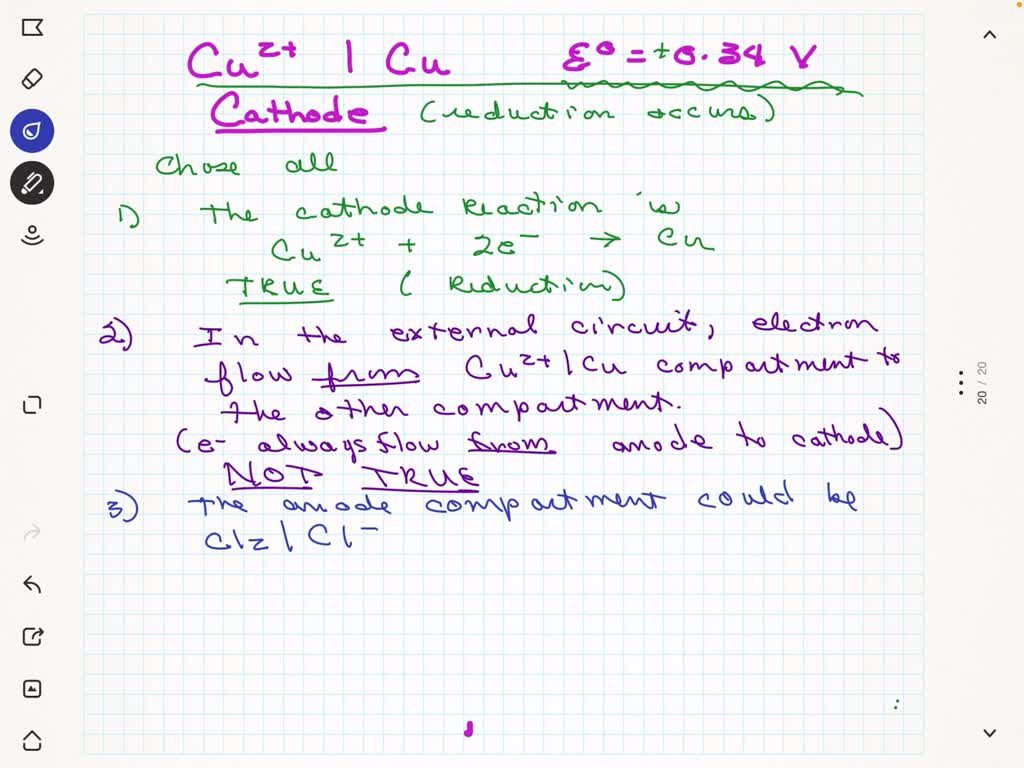 Cu²⁺ | Cu   ℰ° = +0.34 V
Cathode (reduction occurs)
Chose all
1) The cathode reaction is
Cu²⁺ + 2e⁻ → Cu
TRUE (Reduction)
2) In the external circuit, electron
flow from Cu²⁺/Cu compartment to
the other compartment.
(e- always flow from anode to cathode)
NOT TRUE
3) The anode compartment could be
Cl₂ | Cl⁻
20 / 20